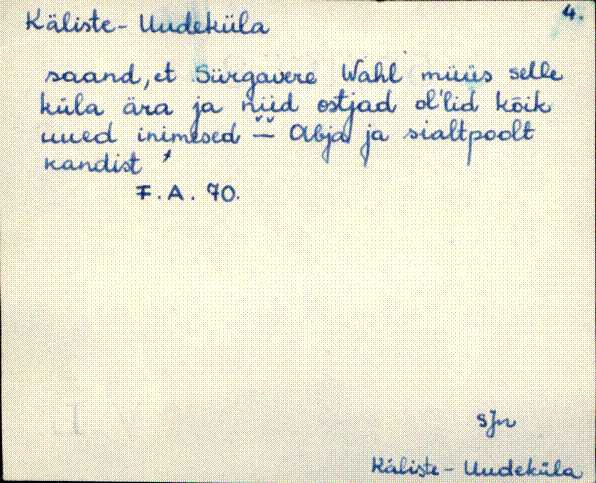 Käliste - Uudeküla
4.
saand, et Sürgavere Wahl müüs selle
küla ära ja nüid ostjad ol'lid kõik
uued inimesed — Abja ja sialtpoolt
kandist
F. A. 70.
SJn
Käliste - Uudeküla